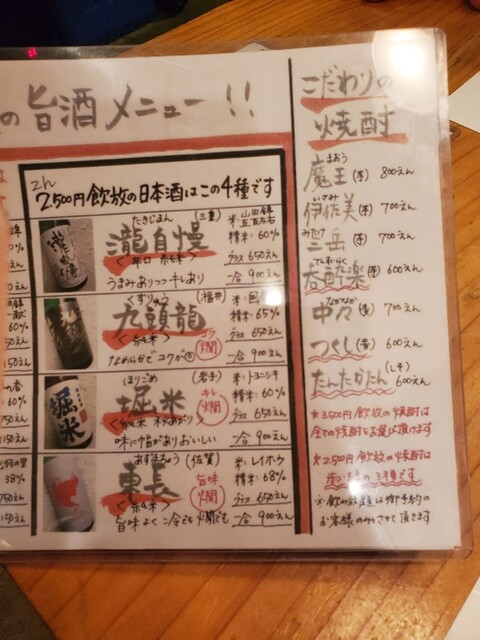 の 旨酒 メニュー!!
2,500円飲放の日本酒はこの4種です
たきじまん
瀧自慢
(三重)
<辛口 純米>
うまみありつつキレあり
米:山田錦
五百万石
精米:60%
グラス 650えん
一合 900えん
くずりゅう
九頭龍
(福井)
<純米>
なめらかでコクが
コク
燗
精米:65%
グラス 650えん
一合 900えん
ほりごめ
堀米
(岩手)
味に幅があり おいしい
キレ
燗
米:トヨニシキ
精米:60%
グラス 650えん
一合 900えん
あずまちょう
東長
(佐賀)
<純米>
旨味よく 冷でも 燗でも
旨味
燗
米:レイホウ
精米:68%
グラス 650えん
一合 900えん
堀米
60%
650えん
150えん
60%
750えん
150えん
38%
750えん
150えん
こだわりの
焼酎
まおう
魔王(芋) 800えん
いさみ
伊佐美(芋) 700えん
みたけ
三岳(芋) 700えん
てんすいらく
呑酔楽(芋) 600えん
なかなか
中々(麦) 700えん
つくし(麦) 600えん
たんたかたん(しそ) 600えん
★3,500円飲放の焼酎は
全ての焼酎をお選び頂けます
★2,500円飲放の焼酎は
赤い線の3種です
※飲み放題は御予約の
お客様のみとさせて頂きます